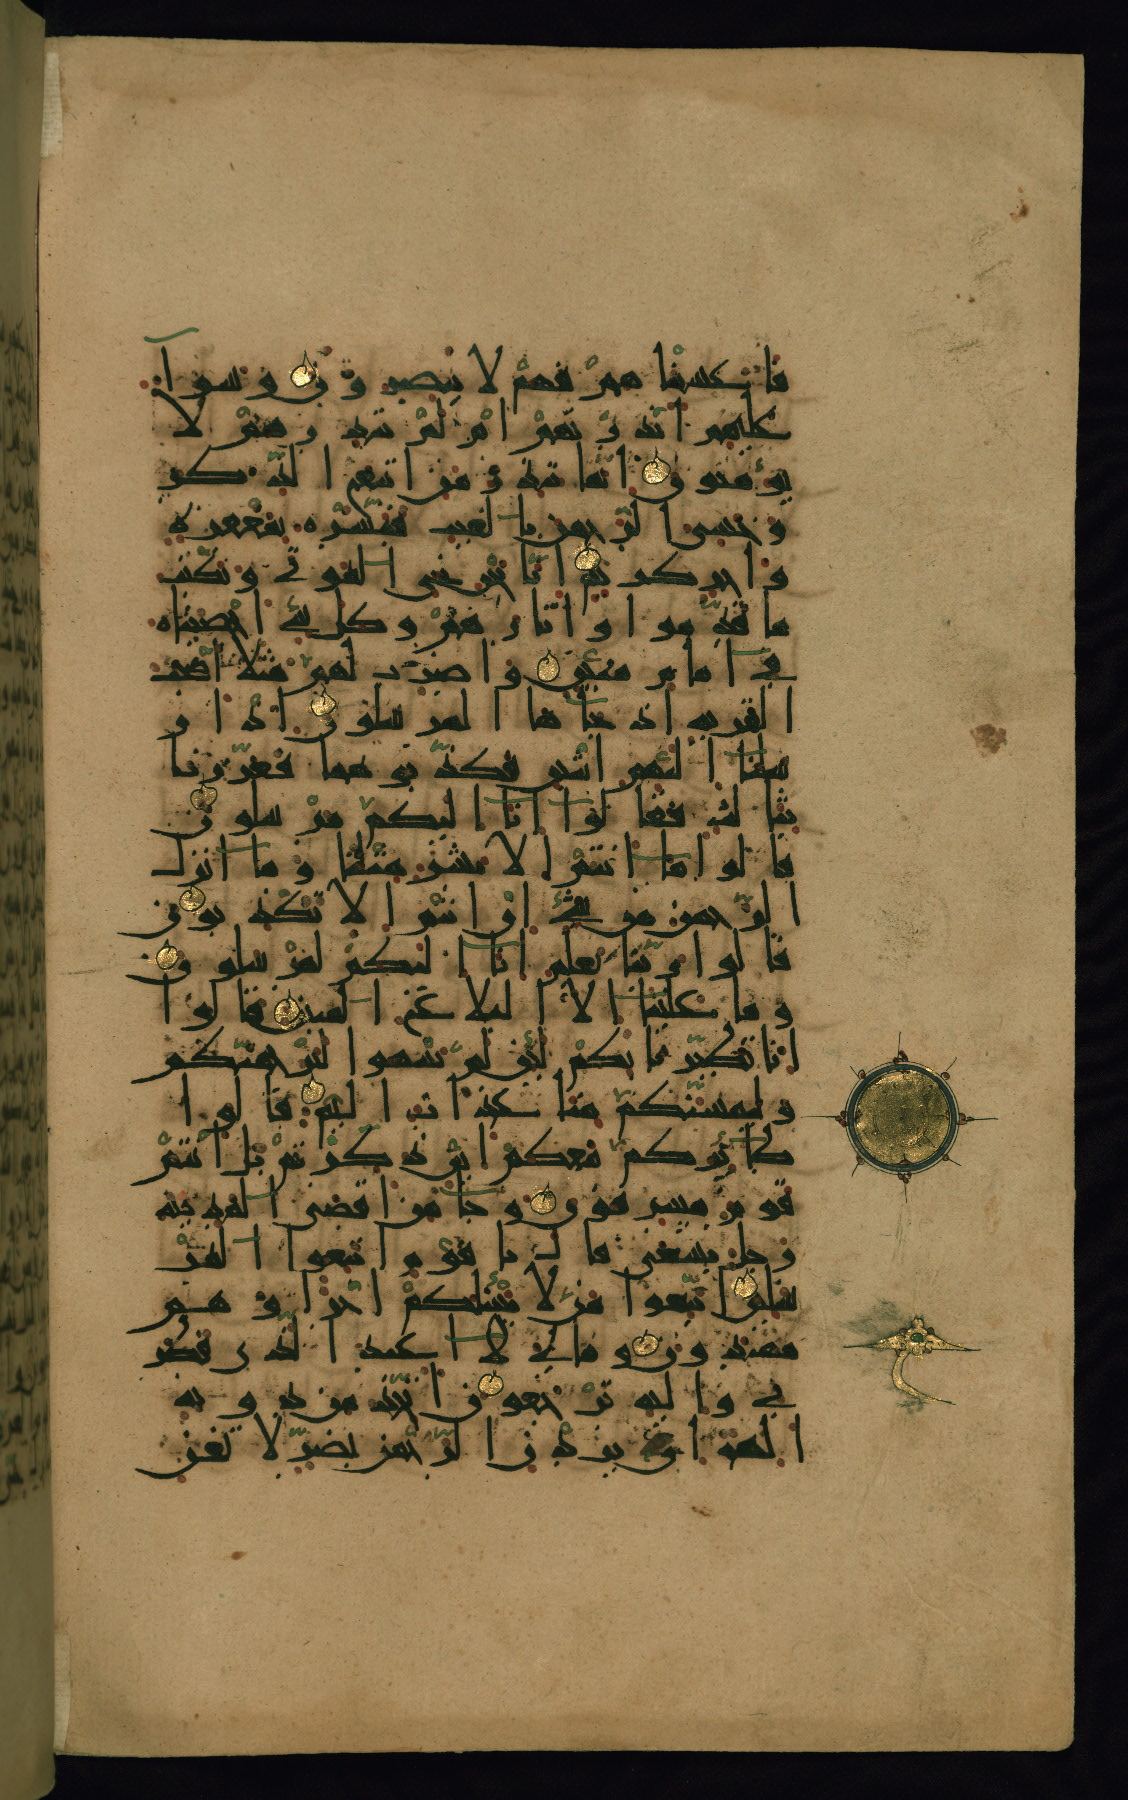 فاغشيناهم فهم لا يبصرون وسوا
عليهم اانذرتهم ام لم تنذرهم لا
يؤمنون انما تنذر من اتبع الذكر
وخشي الرحمن بالغيب فبشره بمغفرة
واجر كريم انا نحن نحي الموتى ونكتب
ما قدموا واثارهم وكل شي احصيناه
في امام مبين واضرب لهم مثلا اصحب
القرية اذ جاها المرسلون اذ ار
سلنا اليهم اثنين فكذبوهما فعززنا
بثالث فقالوا انا اليكم مرسلون
قالوا ما انتم الا بشر مثلنا وما انزل
الرحمن من شي ان انتم الا تكذبون
قالوا ربنا يعلم انا اليكم لمرسلون
وما علينا الا البلاغ المبين قالوا
انا تطيرنا بكم لئن لم تنتهوا لنرجمنكم
وليمسنكم منا عذاب اليم قالوا
طائركم معكم ائن ذكرتم بل انتم
قوم مسرفون وجا من اقصى المدينة
رجل يسعى قال يا قوم اتبعوا المر
سلين اتبعوا من لا يسلكم اجرا وهم
مهتدون وما لي لا اعبد الذي فطر
ني واليه ترجعون ااتخذ من دونه
الهة ان يردن الرحمن بضر لا تغن